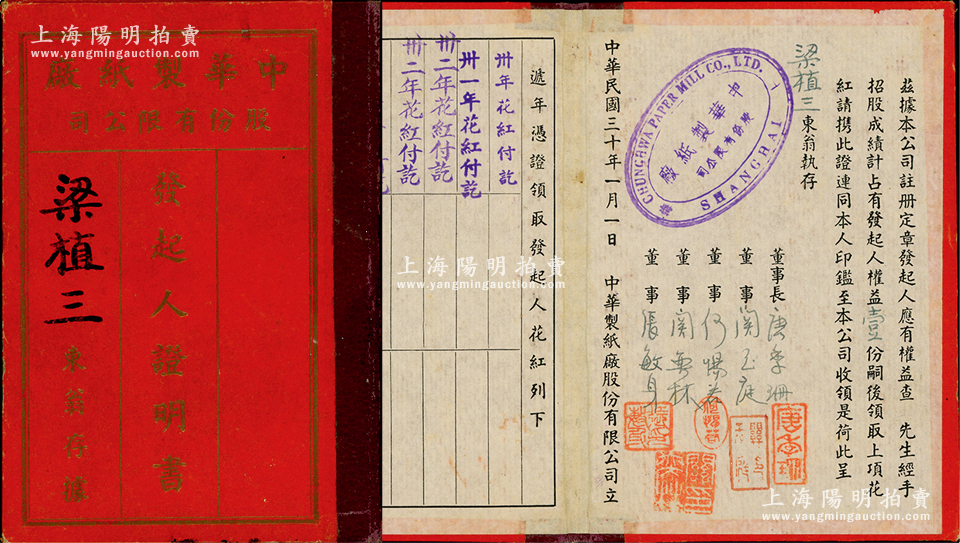 上海陽明拍賣
www.yangmingauction.com
中華製紙廠
股份有限公司
發起人證明書
梁植三
東翁存據
茲據本公司註冊定章發起人應有權益查 先生經手
招股成績計占有發起人權益壹份嗣後領取上項花
紅請携此證連同本人印鑑至本公司收領是荷此呈
梁植三東翁執存
CHUNGHWA PAPER MILL CO., LTD.
中華製紙廠
股份有限公司
SHANGHAI
董事長唐季珊
董事
董事
董事
董事張敏身
中華民國三十年一月一日 中華製紙廠股份有限公司立
遞年憑證領取發起人花紅列下
卅年花紅付訖
卅一年花紅付訖
卅二年花紅付訖
卅二年花紅付訖
上海陽明拍賣
www.yangmingauction.com
上海陽明拍賣
www.yangmingauction.com